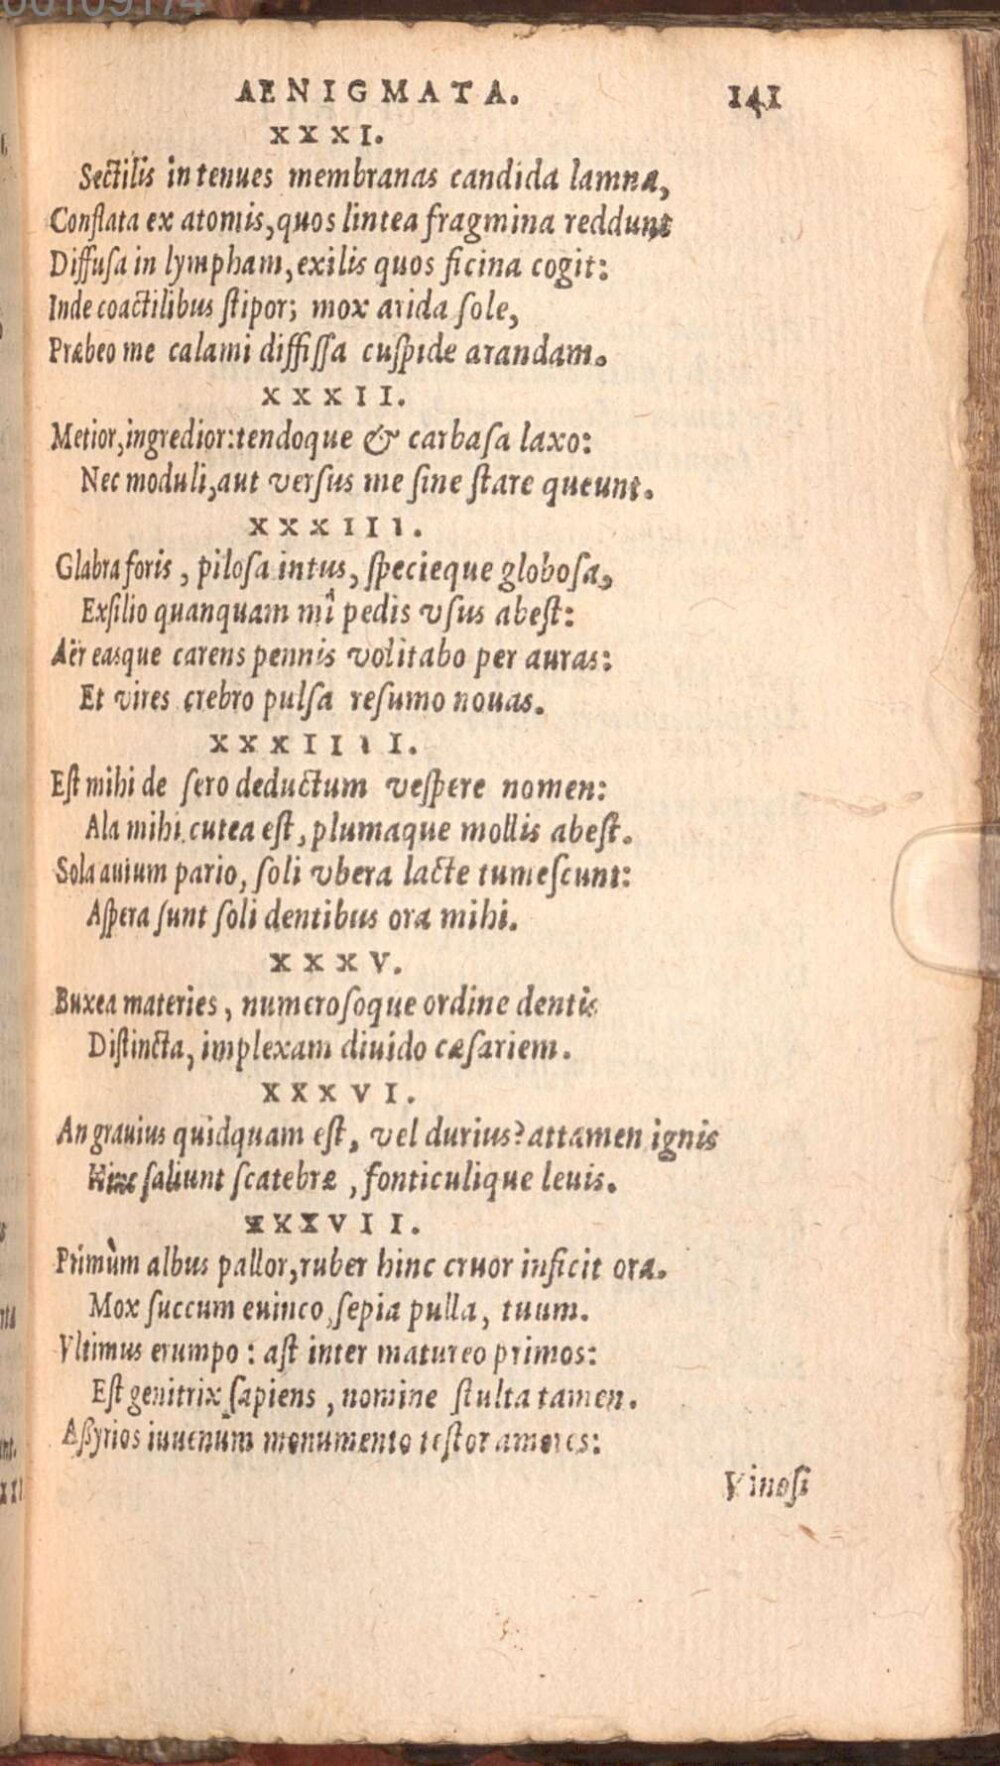 AENIGMATA. 141
XXXI.
Sectilis in tenues membranas candida lamna,
Conflata ex atomis, quos lintea fragmina reddunt
Diffusa in lympham, exilis quos ficina cogit:
Inde coactilibus stipor; mox arida sole,
Præbeo me calami diffissa cuspide arandam.
XXXII.
Metior, ingredior: tendoque & carbasa laxo:
Nec moduli, aut versus me sine stare queunt.
XXXIII.
Glabra foris, pilosa intus, specieque globosa,
Exsilio quanquam mî pedis vsus abest:
Aëreasque carens pennis volitabo per auras:
Et vires crebro pulsa resumo nouas.
XXXIIII.
Est mihi de sero deductum vespere nomen:
Ala mihi cutea est, plumaque mollis abest.
Sola auium pario, soli vbera lacte tumescunt:
Aspera sunt soli dentibus ora mihi.
XXXV.
Buxea materies, numerosoque ordine dentis
Distincta, implexam diuido cæsariem.
XXXVI.
An grauius quidquam est, vel durius? attamen ignis
Hinc saliunt scatebræ, fonticulique leuis.
XXXVII.
Primùm albus pallor, ruber hinc cruor inficit ora.
Mox succum euinco, sepia pulla, tuum.
Vltimus erumpo: ast inter matureo primos:
Est genitrix sapiens, nomine stulta tamen.
Aßyrios iuuenum monumento testor amores:
Vinosi